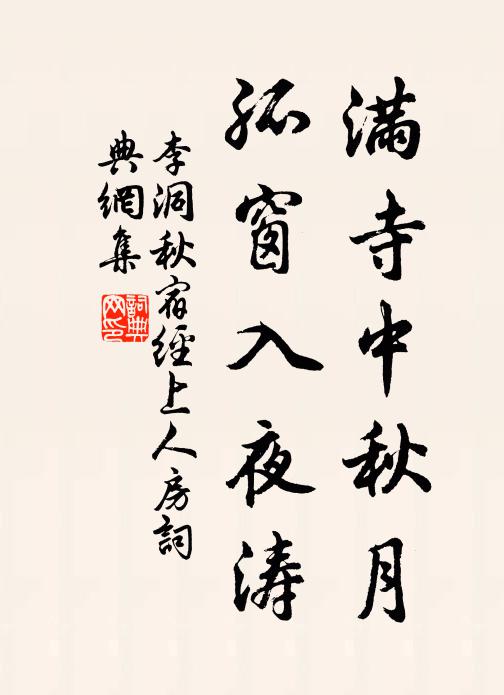 滿寺中秋月
孤窗入夜濤
李洞秋宿經上人房詞
典網集
詞典網印